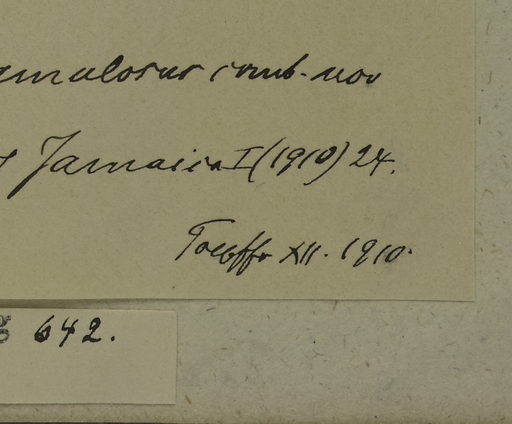 amulosus comb. nov
Jamaica I (1910) 24.
Toepffer XII. 1910.
g 642.